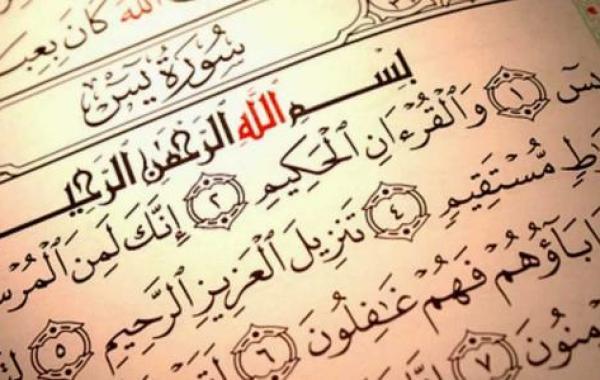 الله كَانَ بِعِبَ
سُورَةُ يسٓ
بِسْمِ اللَّهِ الرَّحْمَٰنِ الرَّحِي
يسٓ ١ وَالْقُرْءَانِ الْحَكِيمِ ٢ إِنَّكَ لَمِنَ الْمُرْسَ
اطٍ مُّسْتَقِيمٍ ٤ تَنزِيلَ الْعَزِيزِ الرَّحِيمِ ٥
ءَابَآؤُهُمْ فَهُمْ غَٰفِلُونَ ٦ لَقَدْ
مِنُونَ ٧ إِنَّا